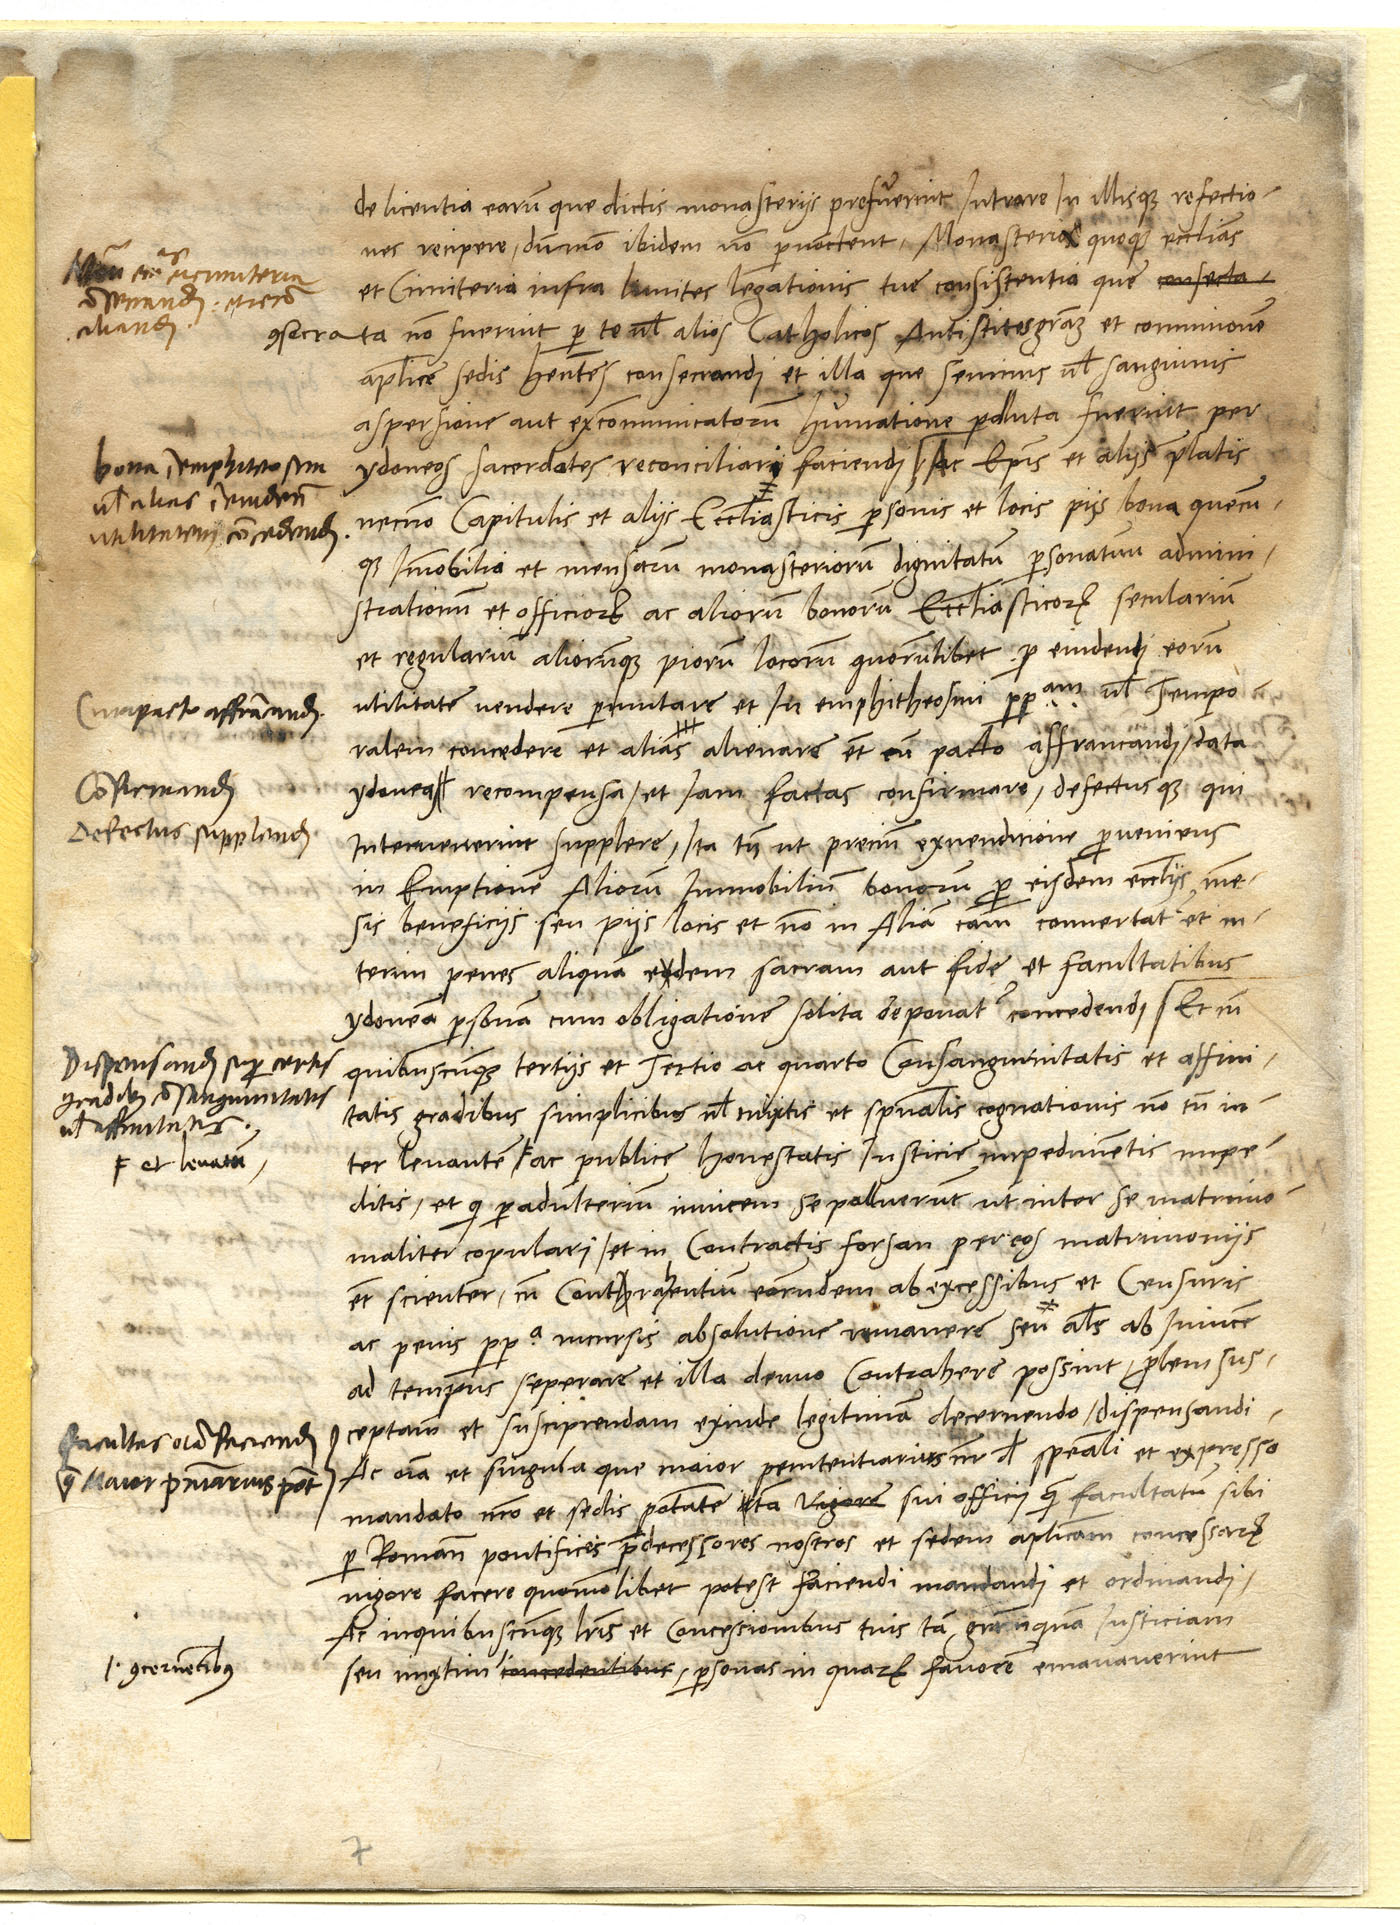 de licentia earū que dictis monasterijs prefuerint Intrare In illisqȝ refectio-
nes recipere, dūmō ibidem nō pnoctent, Monasteria quoqȝ ecclīas
et Cimiteria infra limites legationis tue consistentia que consecta-
9secra ta nō fuerint p te ul alios Catholicos Antistites grāȝ et comunionē
aplicē sedis hentes consecrandi et illa que seminis ul sanguinis
aspersione aut excomunicatorū humatione polluta fuerint per
ydoneos sacerdotes reconciliari faciendi Ac Epīs et alijs platis
necnō Capitulis et alijs Ecclīasticis psonis et locis pijs bona quecū-
qȝ Imobilia et mensarū monasteriorū dignitatū psonatuu admini-
strationū et officioꝝ ac aliorū bonorū Ecclīasticoꝝ seculariū
et regulariū aliorūqȝ piorū locorū quorūlibet p euidendi eorū
utilitatē uendere pmutare et In emphitheosim ppam ul Tempo
ralem concedere et alias alienare et cū pacto affrancandi, data
ydonea recompensa, et Iam factas confirmare, defectusqȝ qui
Interuenerint supplere, Ita tn ut preciū exuenditione proueniens
in Emptionē Aliorū Immobiliū bonorū p eisdem ecclijs, mē-
sis beneficijs seu pijs locis et nō in Aliā cām conuertat et in-
terim penes aliquā edem sacram aut fide et facultatibus
ydoneā psonā cum obligatione solita deponat concedendi Et cū
quibuscūqȝ tertijs et Tertio ac quarto Consanguinitatis et affini-
tatis gradibus simplicibus ul mixtis et spūalis cognationis nō tn in-
ter leuantē ac publice honestatis Iusticie impedimētis impe-
ditis, et q p adulteriū inuicem se polluerūt ut inter se matrimo-
nialiter copulari, et in Contractis forsan per eos matrimonijs
et scienter, cū Contrahentiū eorundem ab excessibus et Censuris
ac penis ppa incursis absolutione remanere seu als ab Inuicē
ad tempus seperare et illa denuo Contrahere possint, plem sus-
ceptam et suscipiendam exinde legitimā decernendo, dispensandi-
Ac oīa et singula que maior penitentiarius nr d spēali et expresso
mandato nrō et sedis potātē tā Vigore sui officij q facultatū sibi
p Romanū pontifices pdecessores nostros et sedem aplicam concessaꝝ
uigore facere quomōlibet potest faciendi mandandi et ordinandi,
Ac inquibuscūqȝ lris et Concessionibus tuis tā grām quā Iusticiam
seu mixtim concedentibus, psonas in quaꝝ fauorē emanauerint
cimiteria
bona
ul alias
utilitatem cōcedend.
Cum pacto affrācand.
Cōfirmand
Defectus supplend
Dispensand sup certis
gradib cōsanguinitatis
ul affinitatis.
et leuatā,
Facultas oīa faciend
q Maior pniarius pot
9cernētib9
7